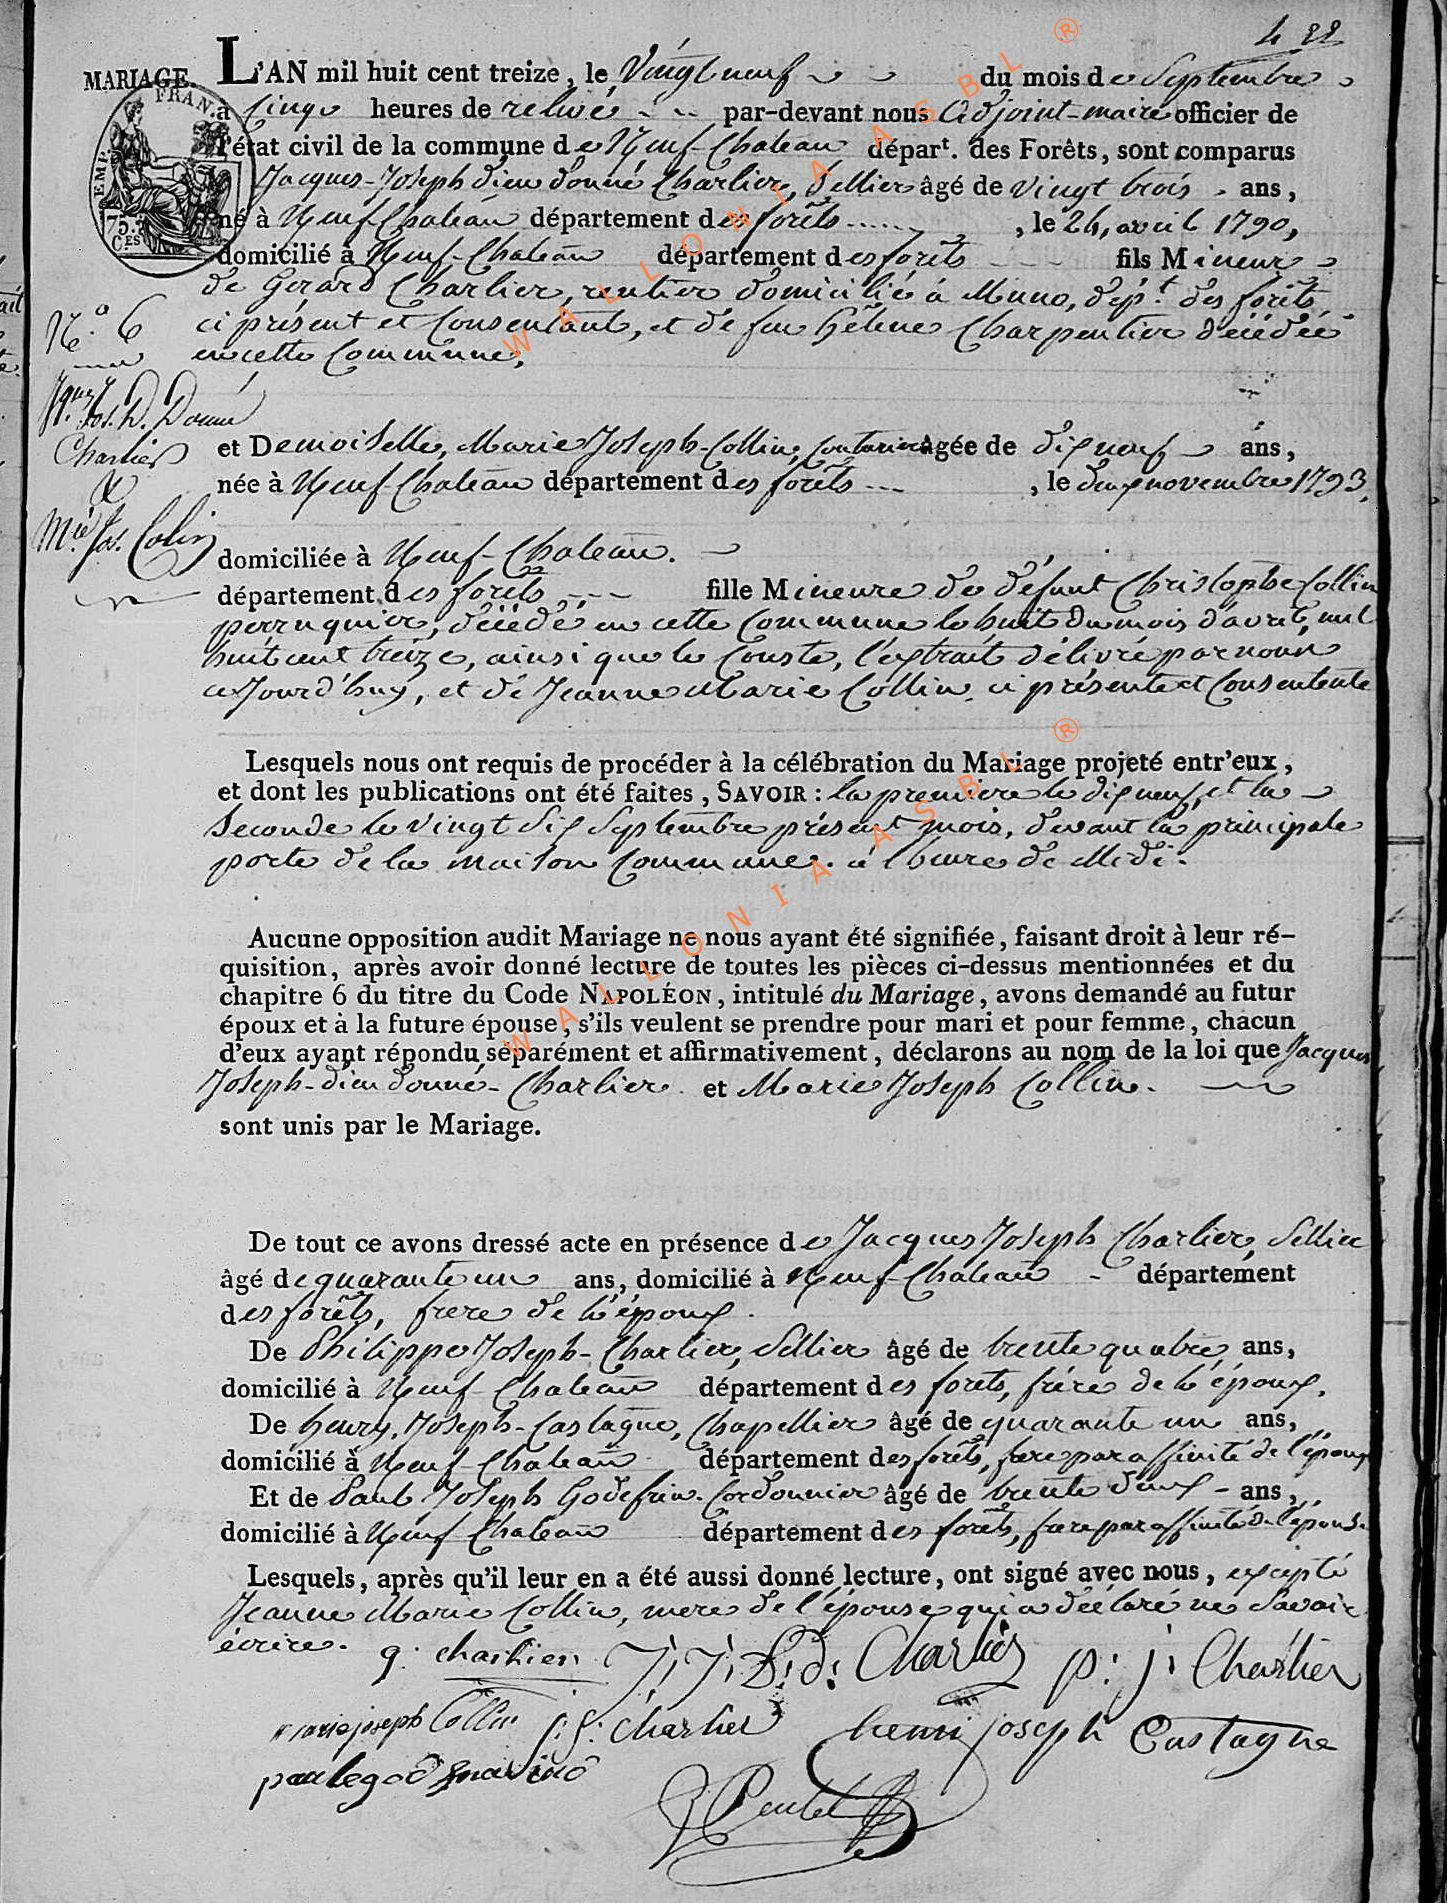 4 22
MARIAGE.
L'AN mil huit cent treize, le Vingt neuf du mois de Septembre
à Cinq heures de relevée par-devant nous Adjoint-maire officier de
l'état civil de la commune de Neuf-Chateau départ. des Forêts, sont comparus
Jacques-Joseph dieu donné Charlier, Sellier âgé de vingt trois ans,
né à Neuf-Chateau département des forêts , le 24, avril 1790,
domicilié à Neuf-Chateau département des forêts fils Mineur
de Gerard Charlier, rentier domicilié à Muno, dép.t des forêts
ci présent et Consentant, et de feu hélene Charpentier décédée
en cette Commune,
FRAN
TEMP.
75.
C.ES
N.o 6
Jques Jos. D. Donné
Charlier
&
Mie Jos. Colin
et Demoiselle, Marie Joseph-Collin, Couturiere âgée de dix neuf ans,
née à Neuf Chateau département des forêts , le deux novembre 1793,
domiciliée à Neuf-Chateau.
département des forêts fille Mineure de défunt Christophe Collin
perruquier, décédé en cette Commune le huit du mois d'avril, mil
huit cent treize, ainsi que le Conste, l'extrait délivré par nous
ce Jourd'huy, et de Jeanne Marie Collin, ci présente et Consentente
Lesquels nous ont requis de procéder à la célébration du Mariage projeté entr'eux,
et dont les publications ont été faites, SAVOIR : la premiere le dix neuf, et la
Seconde le vingt Six Septembre présent mois, devant la principale
porte de la maison Commune. à l'heure de Midi.
Aucune opposition audit Mariage ne nous ayant été signifiée, faisant droit à leur ré-
quisition, après avoir donné lecture de toutes les pièces ci-dessus mentionnées et du
chapitre 6 du titre du Code NAPOLÉON, intitulé du Mariage, avons demandé au futur
époux et à la future épouse, s'ils veulent se prendre pour mari et pour femme, chacun
d'eux ayant répondu séparément et affirmativement, déclarons au nom de la loi que Jacques
Joseph-dieu donné-Charlier et Marie Joseph Collin.
sont unis par le Mariage.
De tout ce avons dressé acte en présence de Jacques Joseph Charlier, Sellier
âgé de quarante un ans, domicilié à Neuf-Chateau département
des forêts, frere de l'époux.
De Philippe Joseph-Charlier, Sellier âgé de trente quatre ans,
domicilié à Neuf-Chateau département des forets, frére de l'époux,
De henry, Joseph-Castagne, Chapellier âgé de quarante un ans,
domicilié à Neuf-Chateau département des forêts, frere par affinité de l'époux
Et de Paul Joseph Godefrin. Cordonnier âgé de trente deux ans,
domicilié à Neuf Chateau département des forêts, frere par affinité de l'épouse
Lesquels, après qu'il leur en a été aussi donné lecture, ont signé avec nous, excepté
Jeanne Marie Collin, mere de l'épouse qui a déclaré ne Savoir
écrire. g. charlier J: J: D: d: Charlier p: j: Charlier
marie joseph Collin j: j: charlier henri joseph Castagne
WALLONIA ASBL ®
WALLONIA ASBL ®